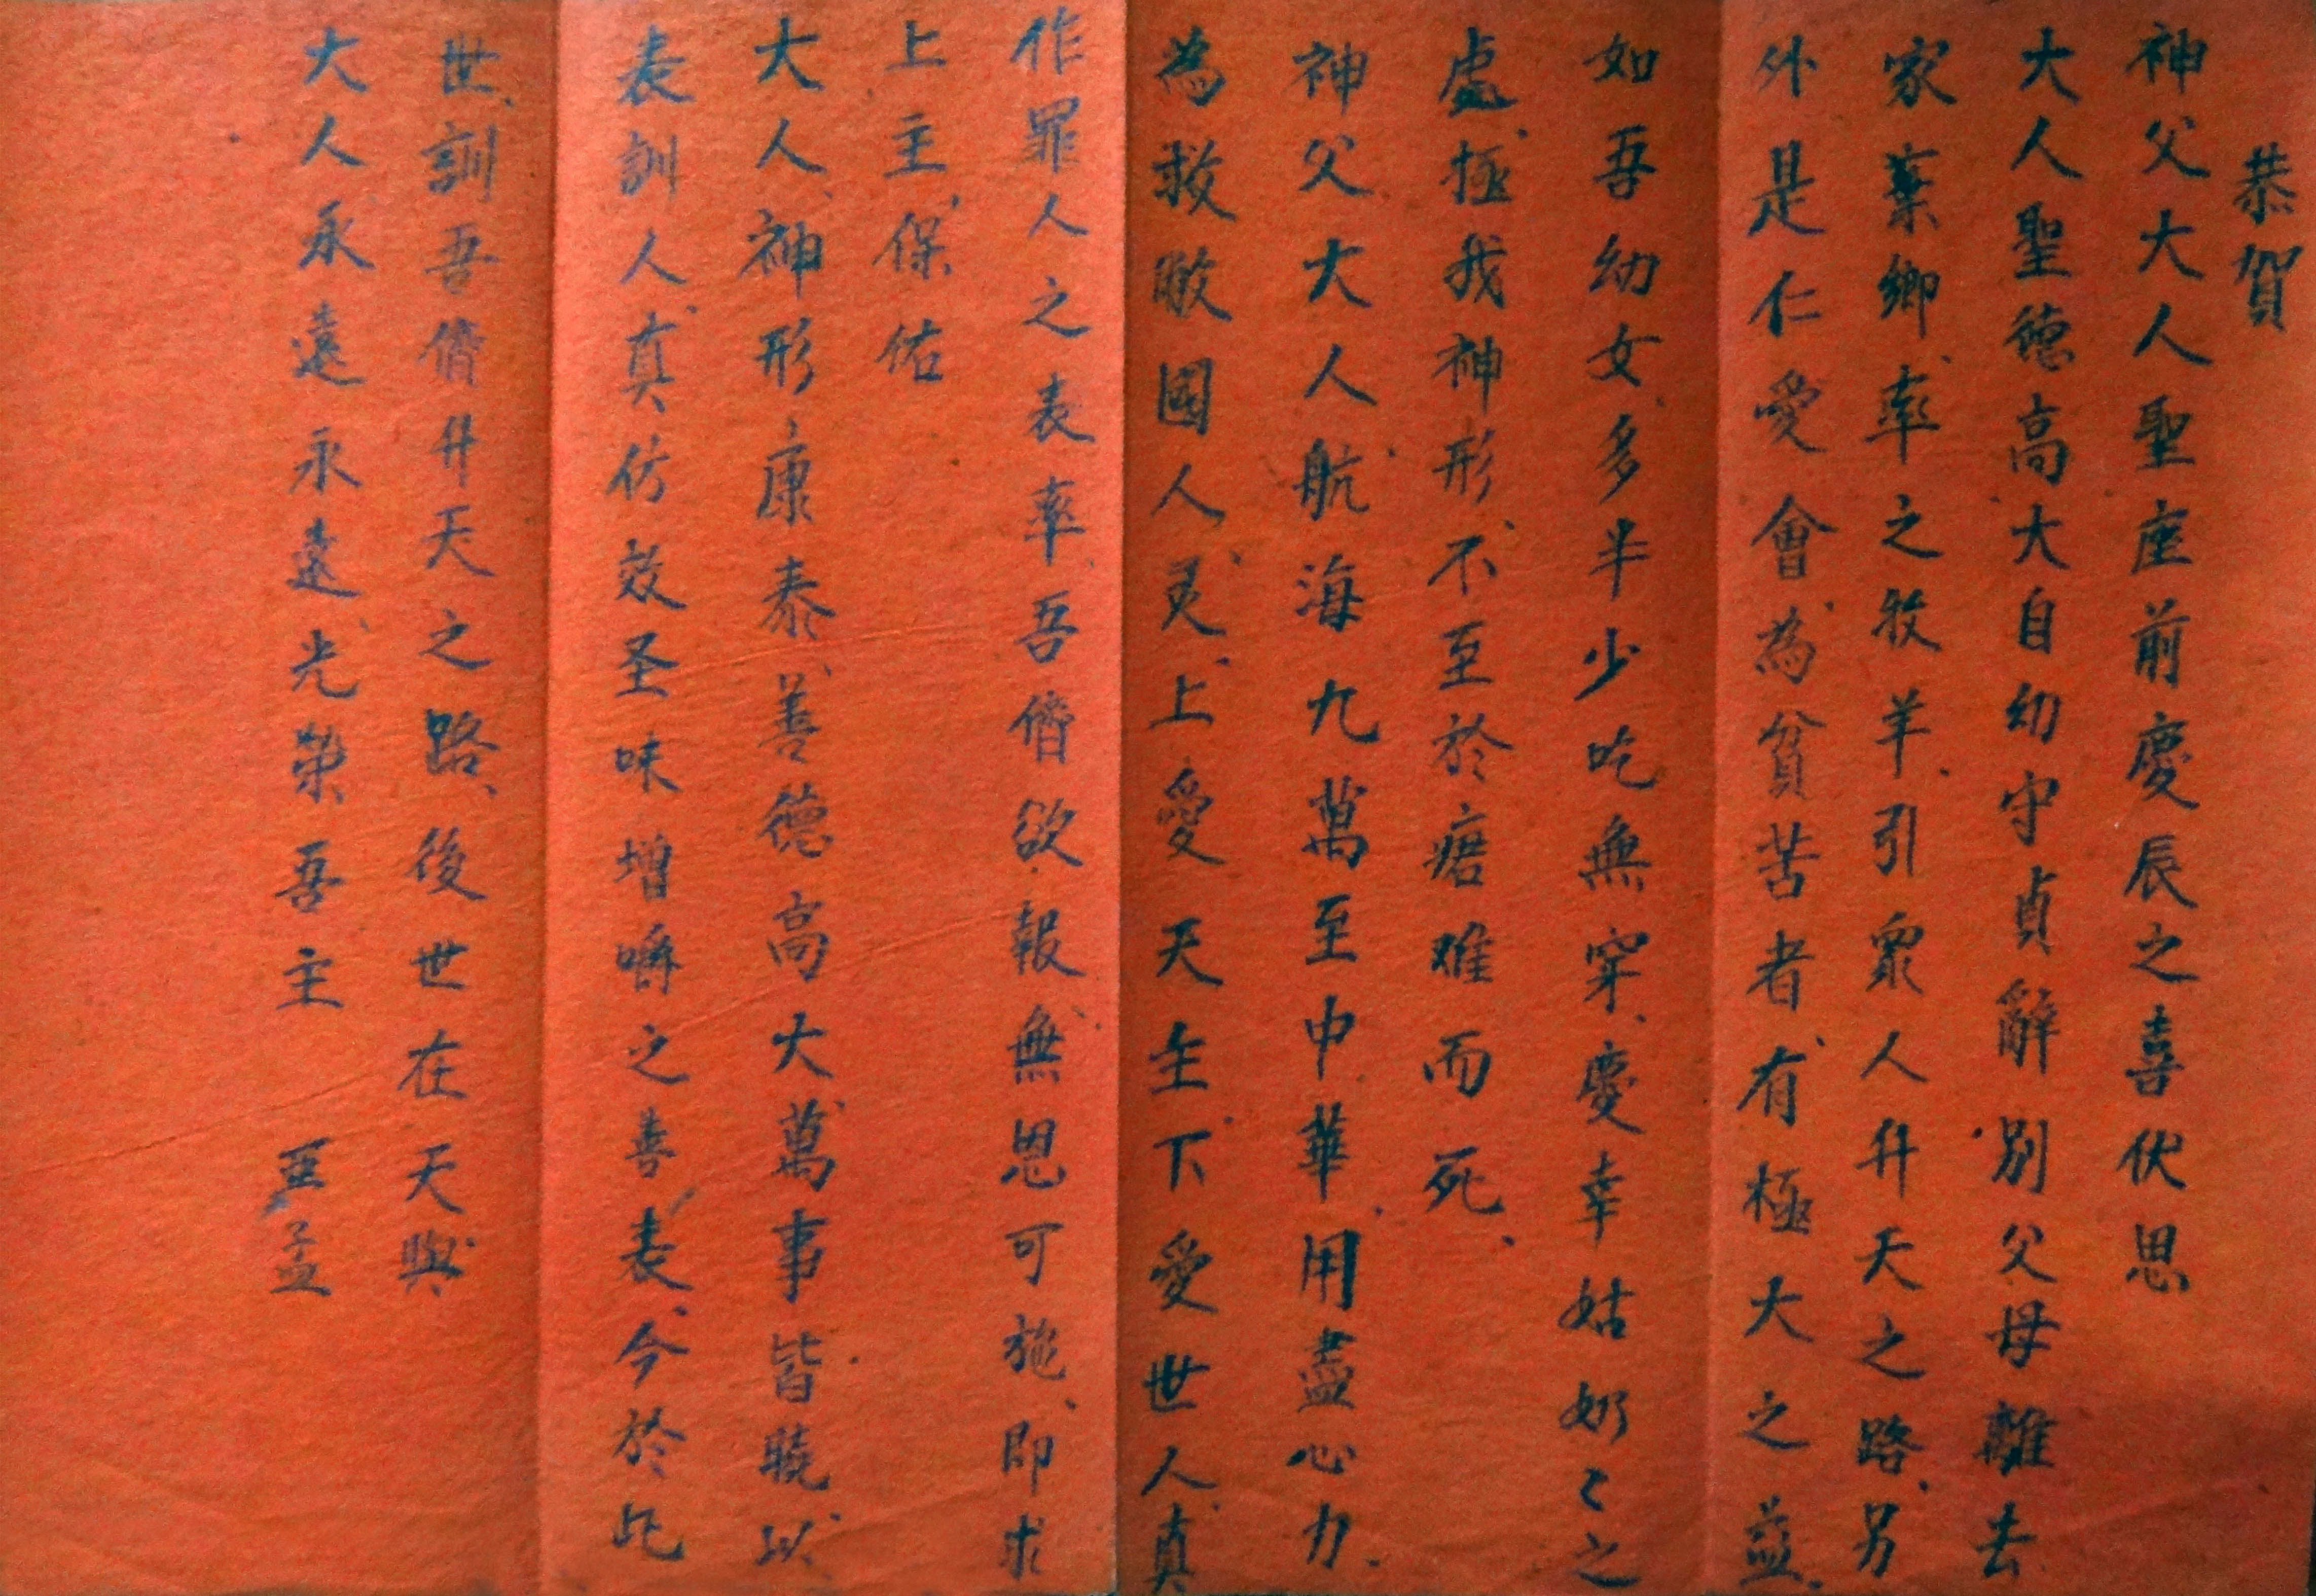 恭賀
神父大人聖座前慶辰之喜伏思
大人聖德高大自幼守貞辭別父母離去
家業鄉率之牧羊引眾人升天之路另
外是仁愛會為貧苦者有極大之益
如吾幼女多半少吃無穿慶幸姑奶〻之
處拯我神形不至於瘡难而死
神父大人航海九萬至中華用盡心力
為救敝國人灵上愛天主下愛世人真
作罪人之表率吾儕欲報無恩可施即求
上主保佑
大人神形康泰善德高大萬事皆曉以
表訓人真仿效圣味增嚼之善表今於此
世訓吾儕升天之路後世在天與
大人永遠永遠光榮吾主 亞孟